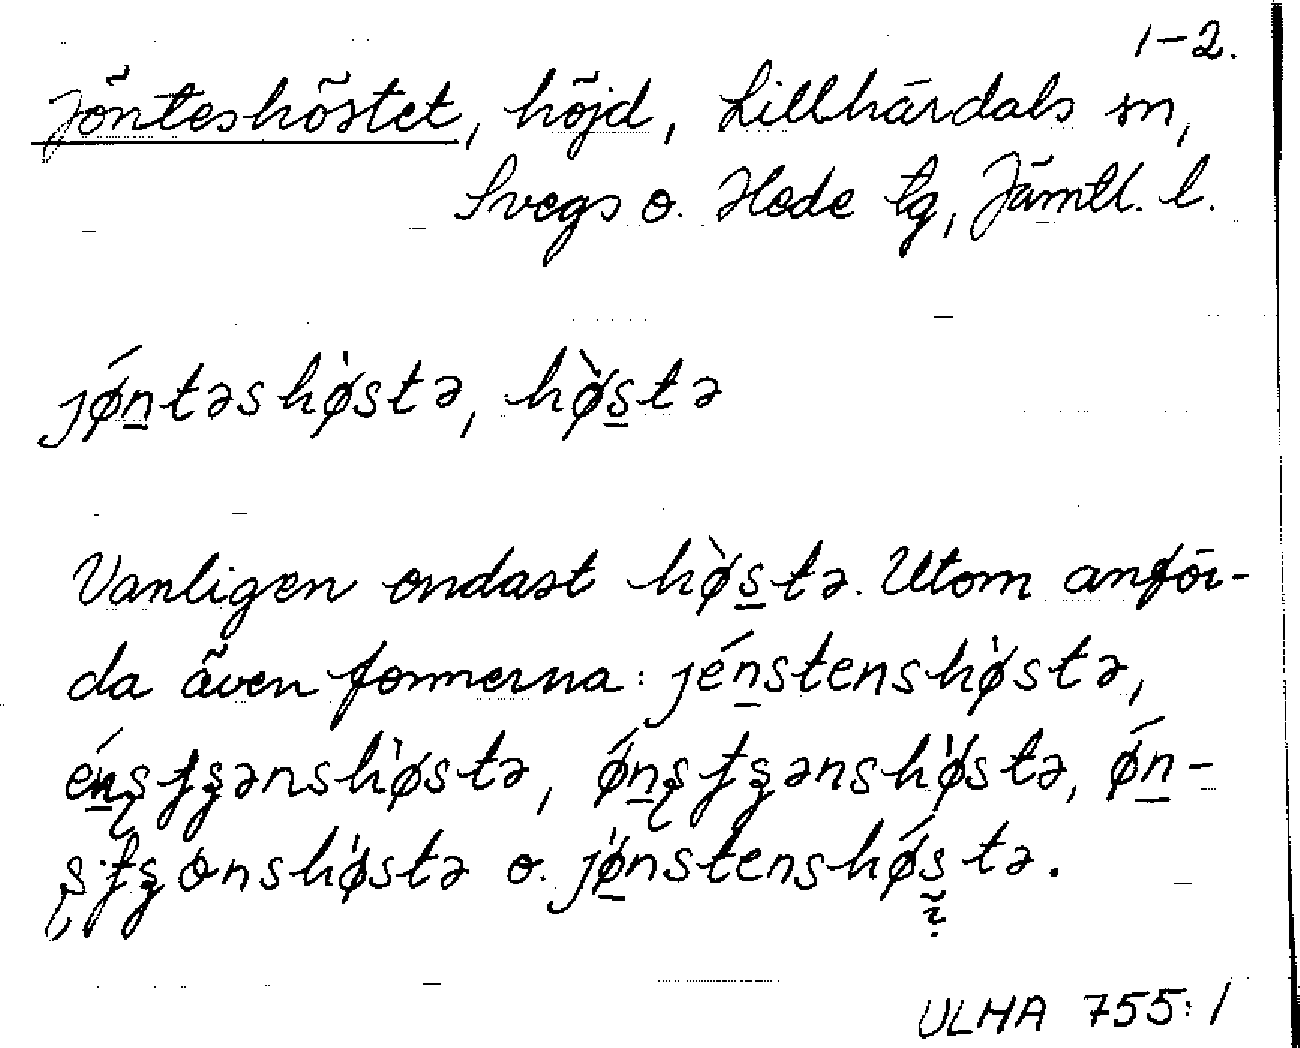 1-2.
Jönteshöstet, höjd, Lillhärdals sn,
Svegs o. Hede tg, Jämtl. l.
jǿn̲təshø̀stə, hø̀s̲tə
Vanligen endast hø̀s̲tə. Utom anför-
da även formerna: jén̲stenshø̀stə,
én̲şʈʂənshø̀stə, ǿn̲şʈʂənshø̀stə, ǿn̲-
şʈʂənshø̀stə o. jø̀n̲stenshǿs̲tə.
ULMA 755:1